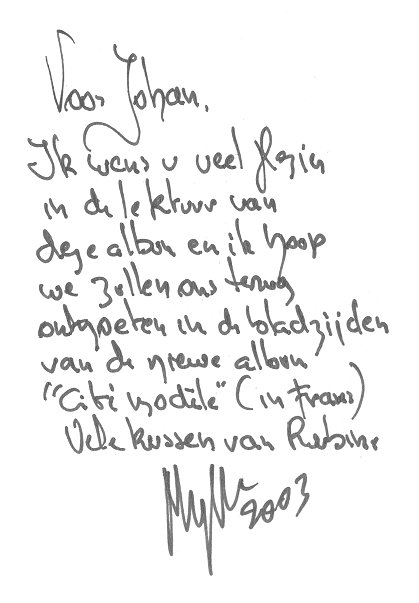 Voor Johan,
Ik wens u veel plezier
in de lektuur van
deze album en ik hoop
we zullen ons terug
ontmoeten in de bladzijden
van de nieuwe album
"Cité modèle" (in Frans)
Vele kussen van Rubine
2003